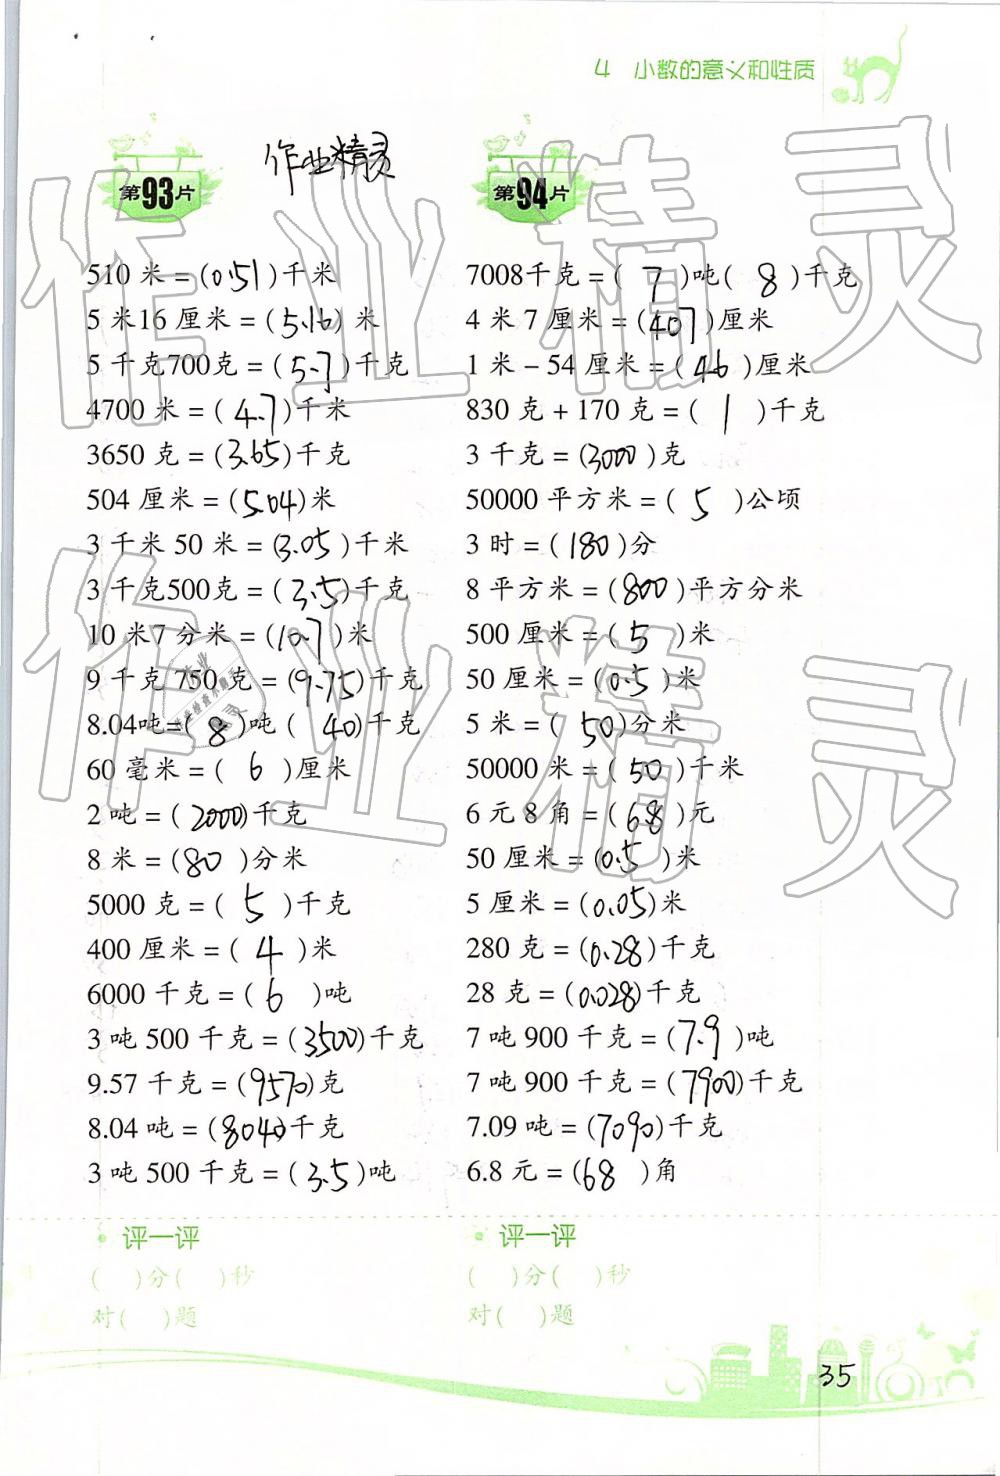 4 小数的意义和性质
作业精灵
第93片
510 米 = (0.51)千米
5 米16 厘米 = (5.16) 米
5 千克700克 = (5.7)千克
4700 米 = (4.7)千米
3650 克 = (3.65)千克
504 厘米 = (5.04)米
3 千米 50 米 = (3.05)千米
3 千克500克 = (3.5)千克
10 米7 分米 = (10.7)米
9 千克 750 克 = (9.75)千克
8.04吨=(8)吨(40)千克
60 毫米 = (6)厘米
2 吨 = (2000)千克
8 米 = (80)分米
5000 克 = (5)千克
400 厘米 = (4)米
6000 千克 = (6)吨
3 吨 500 千克 = (3500)千克
9.57 千克 = (9570)克
8.04 吨 = (8040)千克
3 吨 500 千克 = (3.5)吨
评一评
( )分( )秒
对( )题
第94片
7008千克 = (7)吨(8)千克
4 米 7 厘米 = (407)厘米
1 米 - 54 厘米 = (46)厘米
830 克 + 170 克 = (1)千克
3 千克 = (3000)克
50000 平方米 = (5)公顷
3 时 = (180)分
8 平方米 = (800)平方分米
500 厘米 = (5)米
50 厘米 = (0.5)米
5 米 = (50)分米
50000 米 = (50)千米
6 元 8 角 = (6.8)元
50 厘米 = (0.5)米
5 厘米 = (0.05)米
280 克 = (0.28)千克
28 克 = (0.028)千克
7 吨 900 千克 = (7.9)吨
7 吨 900 千克 = (7900)千克
7.09 吨 = (7090)千克
6.8 元 = (68)角
评一评
( )分( )秒
对( )题
35
作业精灵
作业精灵